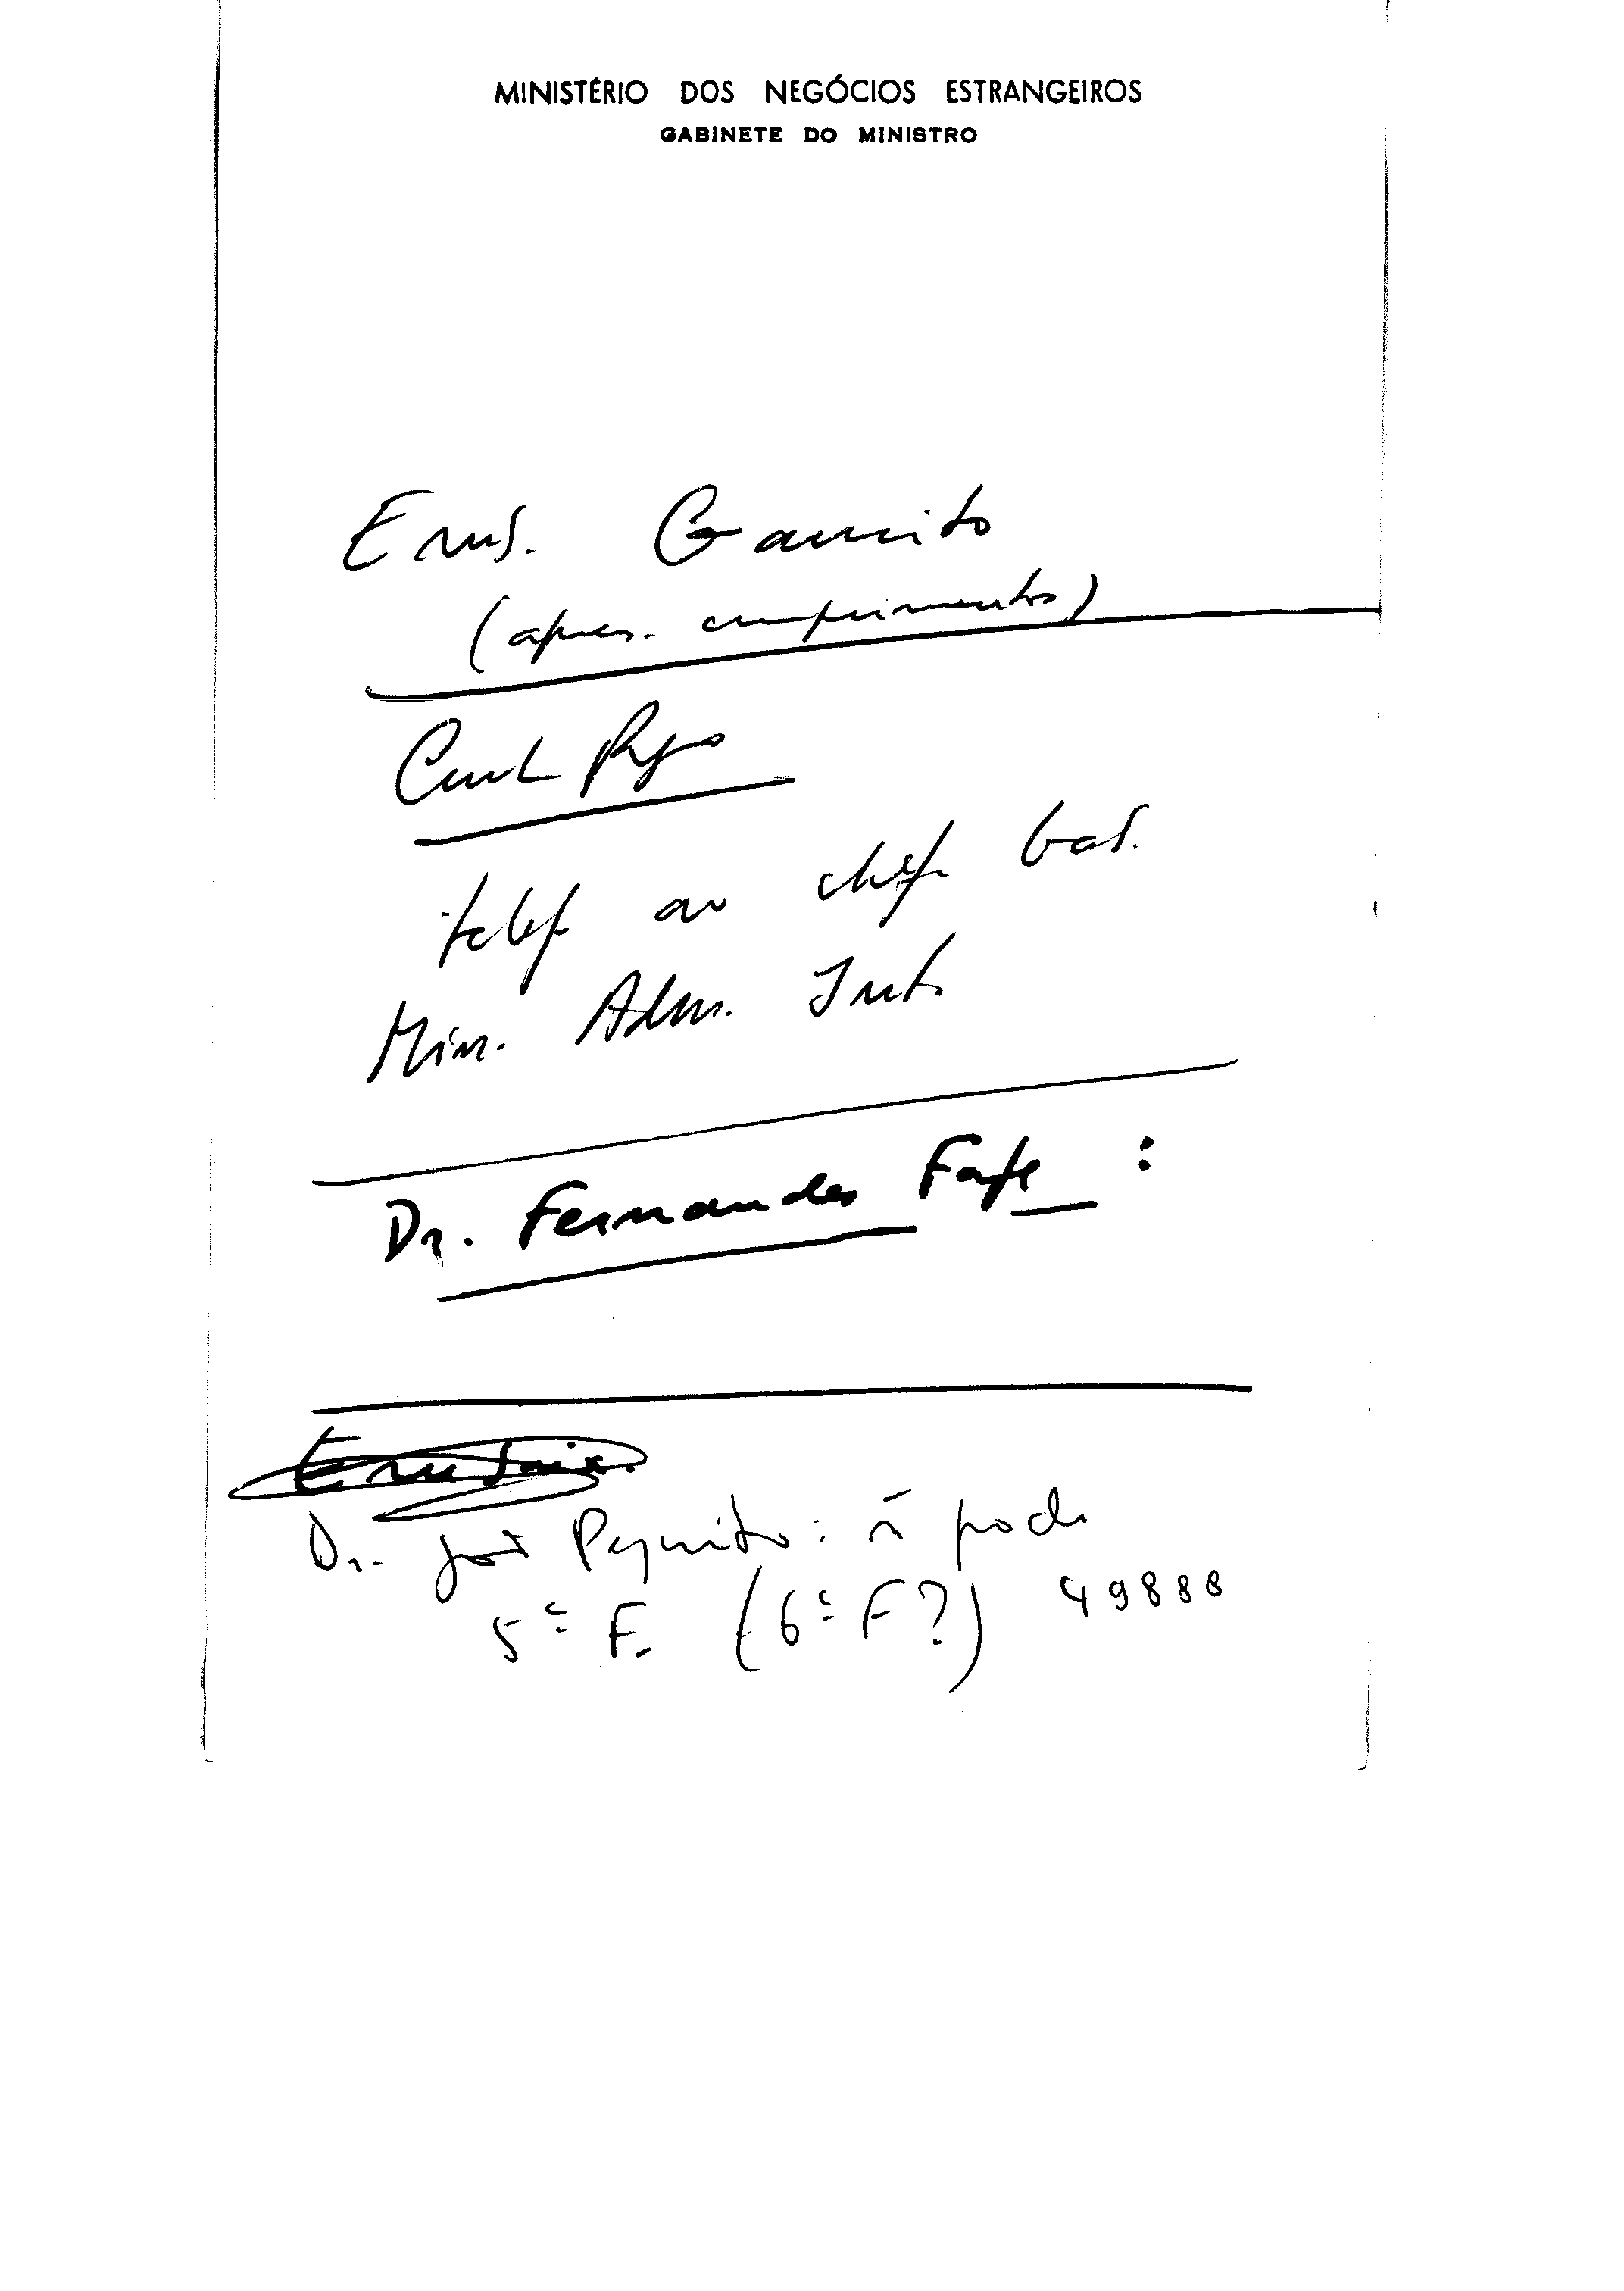 MINISTÉRIO DOS NEGÓCIOS ESTRANGEIROS
GABINETE DO MINISTRO
Emb. Gamito
(apres. cumprimentos)
telef. ao chefe Gab.
Min. Adm. Int.
Dr. Fernandes Fafe :
Dr. José Pequito: ñ pode
5ª F. (6ª F?) 49888